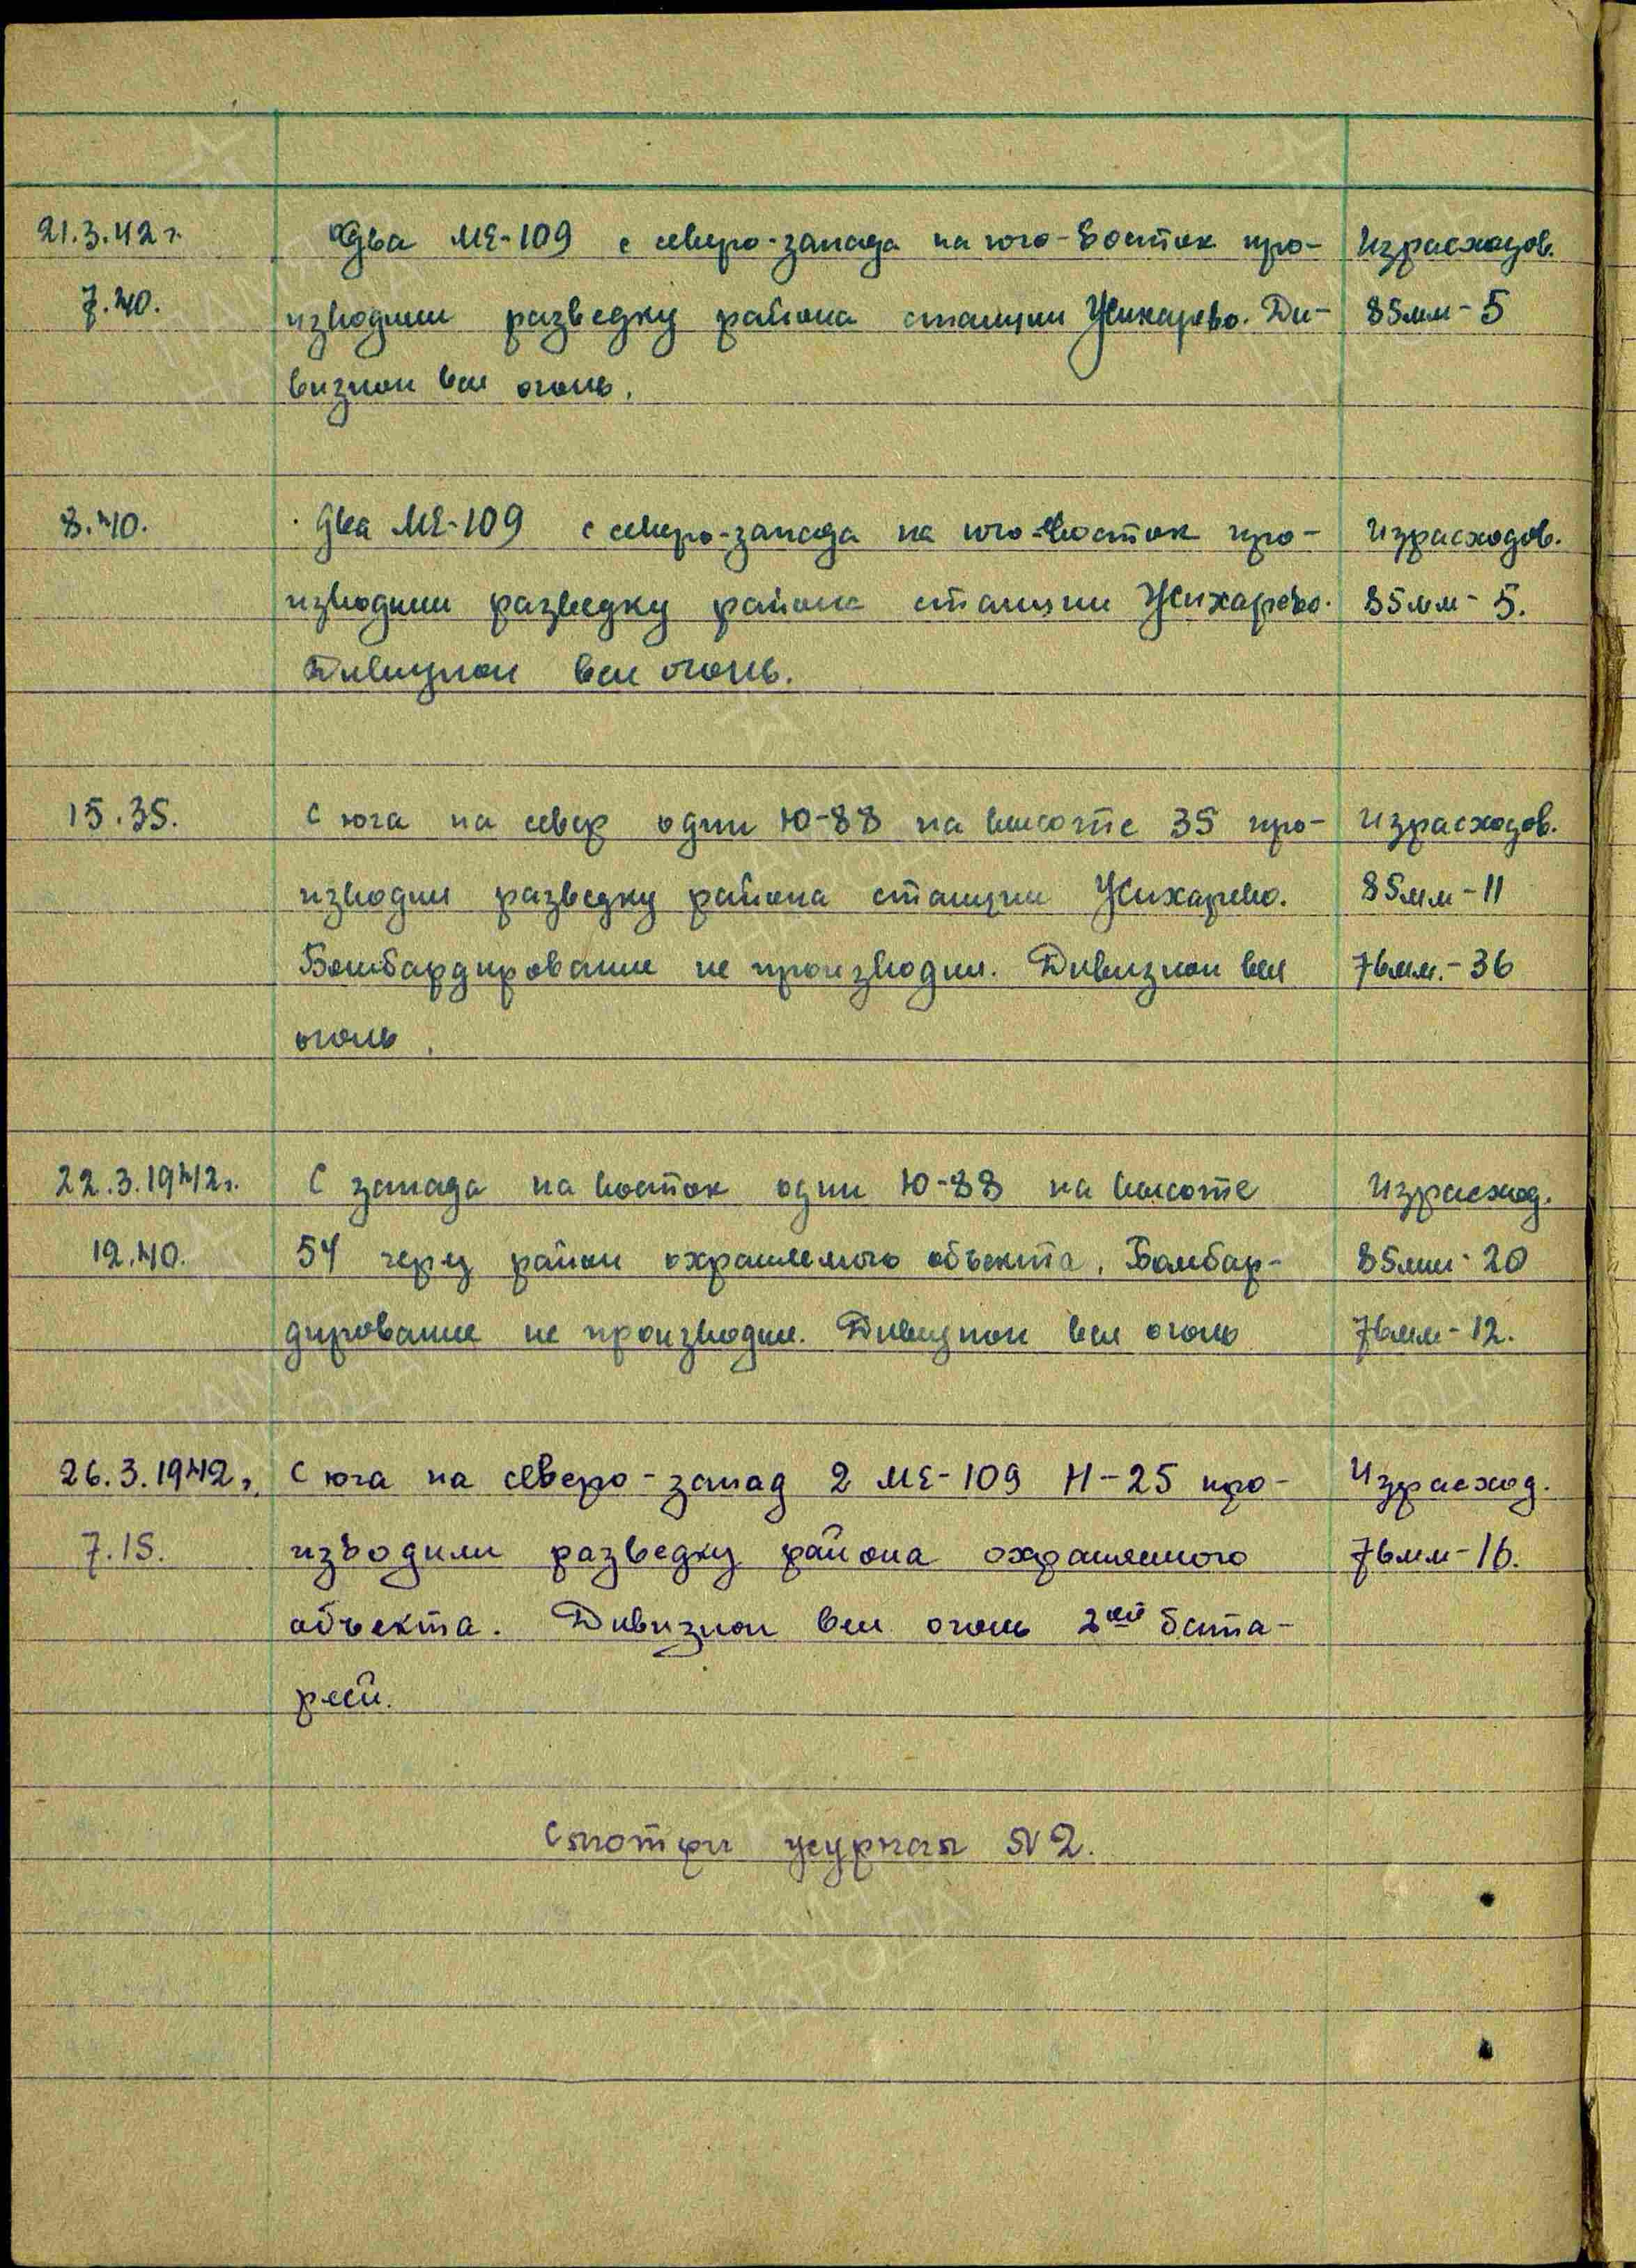 21.3.42 г. Два МЕ-109 с северо-запада на юго-восток про- Израсходов.
7.40. изводили разведку района станции Жихарево. Ди- 85мм-5
визион вел огонь.
8.40. Два МЕ-109 с северо-запада на юго-восток про- Израсходов.
изводили разведку района станции Жихарево. 85мм-5.
Дивизион вел огонь.
15.35. С юга на север один Ю-88 на высоте 35 про- Израсходов.
изводил разведку района станции Жихарево. 85мм-11
Бомбардирование не производил. Дивизион вел 76мм.-36
огонь.
22.3.1942г. С запада на восток один Ю-88 на высоте Израсход.
12.40. 54 через район охраняемого объекта. Бомбар- 85мм-20
дирование не производил. Дивизион вел огонь 76мм-12.
26.3.1942г. С юга на северо-запад 2 МЕ-109 Н-25 про- Израсход.
7.15. изводили разведку района охраняемого 76мм-16.
объекта. Дивизион вел огонь 2ой бата-
реей.
Смотри журнал №2.
ПАМЯТЬ
НАРОДА